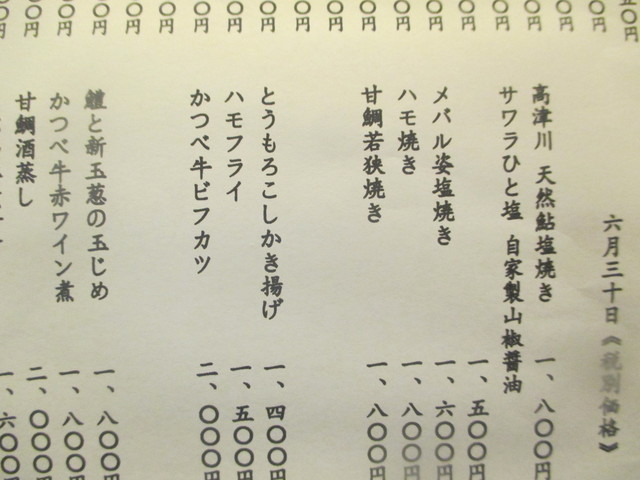 六月三十日《税別価格》
高津川 天然鮎塩焼き 一、八〇〇円
サワラひと塩 自家製山椒醤油 一、五〇〇円
メバル姿塩焼き 一、六〇〇円
ハモ焼き 一、八〇〇円
甘鯛若狭焼き 一、八〇〇円
とうもろこしかき揚げ 一、四〇〇円
ハモフライ 一、五〇〇円
かつべ牛ビフカツ 二、〇〇〇円
鱧と新玉葱の玉じめ 一、八〇〇
かつべ牛赤ワイン煮 一、八〇〇
甘鯛酒蒸し 二、〇〇〇
一、六〇〇